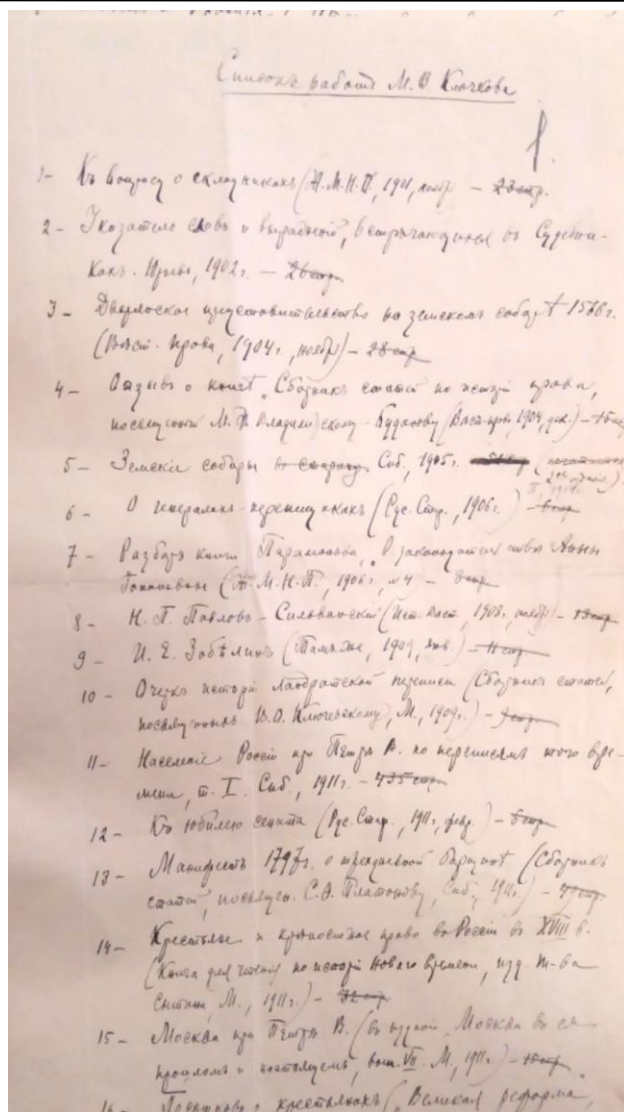 Списокъ работъ М. В. Клочкова
1 - Къ вопросу о складникахъ (Ж. М. Н. П., 1901, ноябр) - 23 стр.
2 - Указатель словъ и выраженій, встрѣчающихся въ Судебни-
кахъ. Юрьев, 1902 г. - 26 стр
3 - Дворянское представительство на земскомъ соборѣ 1566 г.
(Вѣст. Права, 1904, ноябрь) - 28 стр
4 - Отзывъ о книгѣ "Сборникъ статей по исторіи права,
посвященный М. Ф. Владимірскому-Буданову (Вѣст. права 1904, дек.) -
5 - Земскіе соборы в старину Спб., 1905 г.
6 - О генералахъ-переписчикахъ (Рус. Стар., 1906 г.) - 6 стр
7 - Разборъ книги Парамонова, О законодательствѣ Анны
Іоанновны (Ж. М. Н. П., 1906 г., № 4) - стр
8 - Н. П. Павловъ-Сильванскій (Ист. Вѣст., 1908, ноябр) - 13 стр
9 - И. Е. Забѣлинъ (Тамъ же, 1909, янв.) - 11 стр
10 - Очеркъ исторіи ландратской переписи (Сборникъ статей,
посвященныхъ В. О. Ключевскому, М., 1909 г.) - 9 стр
11 - Населеніе Россіи при Петрѣ В. по переписямъ того вре-
мени, т. I. Спб., 1911 г. - 435 стр
12 - Къ юбилею сената (Рус. Стар., 1911, февр.) - 6 стр
13 - Манифестъ 1797 г. о трехдневной барщинѣ (Сборникъ
статей, посвящ. С. Ѳ. Платонову, Спб., 1911 г.) - стр
14 - Крестьяне и крѣпостное право въ Россіи въ XVIII в.
(Книга для чтенія по исторіи Новаго времени, изд. т-ва
Сытина, М., 1911 г.) - 32 стр
15 - Москва при Петрѣ В. (въ изданіи "Москва въ ея
прошломъ и настоящемъ, вып. VII. М., 1911) - 15 стр
16 - крестьянахъ ("Великая реформа,